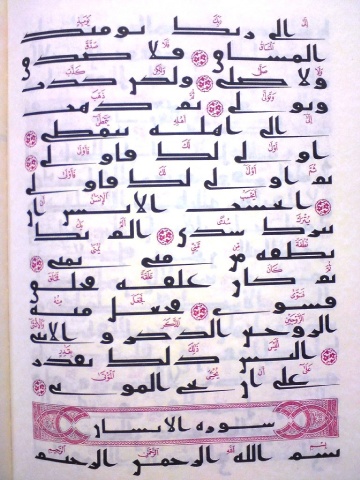 الى ربك يومئذ
المساق فلا صدق
ولا صلى ولكن كذب
وتولى ثم ذهب
الى اهله يتمطى
اولى لك فاولى
ثم اولى لك فاولى
ايحسب الانسان ان
يترك سدى الم يك
نطفة من مني يمنى
ثم كان علقة فخلق
فسوى فجعل منه
الزوجين الذكر والانثى
اليس ذلك بقدر
على ان يحيي الموتى
سورة الانسان
بسم الله الرحمن الرحيم